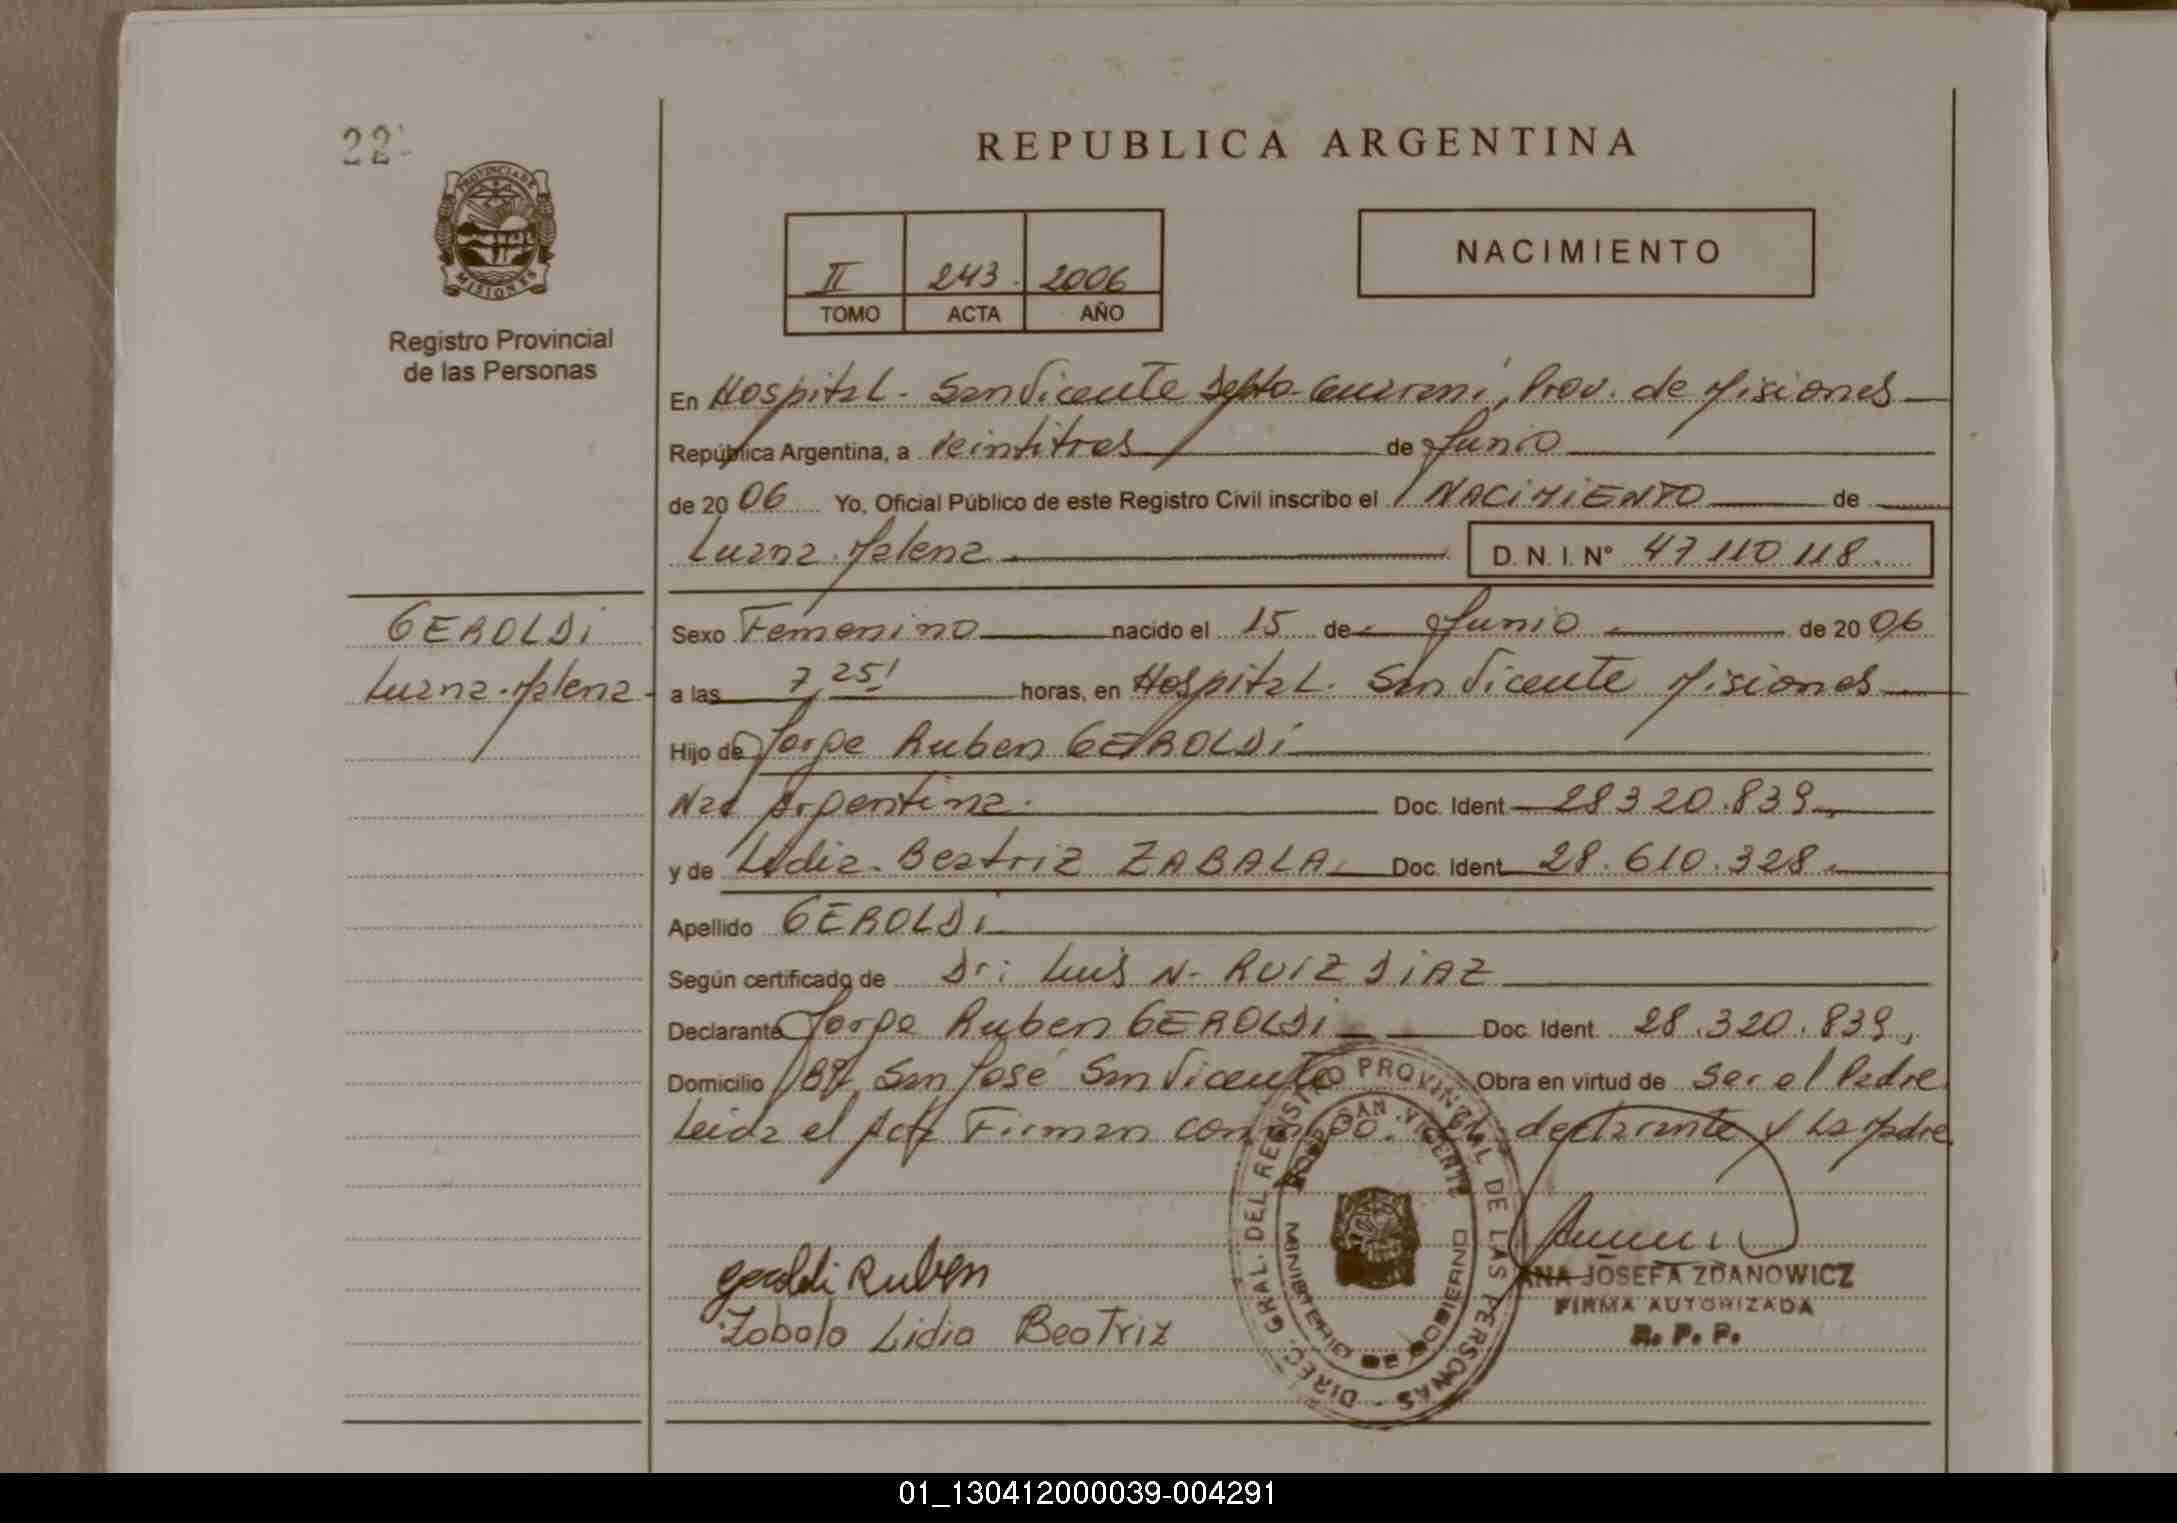 22
REPUBLICA ARGENTINA
PROVINCIA DE
MISIONES
Registro Provincial
de las Personas
II 243 2006
TOMO ACTA AÑO
NACIMIENTO
En Hospital - San Vicente Depto Guarani, Prov. de Misiones
República Argentina, a Veintitres de Junio
de 20 06 Yo, Oficial Público de este Registro Civil inscribo el NACIMIENTO de
Luana Malena D. N. I. Nº 47 110 118.
GEROLDI
Luana Malena
Sexo Femenino nacido el 15 de Junio de 20 06
a las 7,25' horas, en Hospital. San Vicente Misiones
Hijo de Jorge Ruben GEROLDI
Nac Argentina. Doc. Ident. 28320.839
y de Lidia Beatriz ZABALA Doc. Ident. 28.610.328.
Apellido GEROLDI
Según certificado de Dr: Luis N. RUIZ DIAZ
Declarante Jorge Ruben GEROLDI Doc. Ident. 28.320.839,
Domicilio Bº San José San Vicente Obra en virtud de Ser el Padre
Leida el Acta Firman conmigo. El declarante y La Madre
DIREC. GRAL. DEL REGISTRO PROVINCIAL DE LAS PERSONAS
SAN VICENTE
MINISTERIO DE GOBIERNO
Geroldi Ruben
Zabala Lidia Beatriz
ANA JOSEFA ZDANOWICZ
FIRMA AUTORIZADA
R. P. P.
01_130412000039-004291